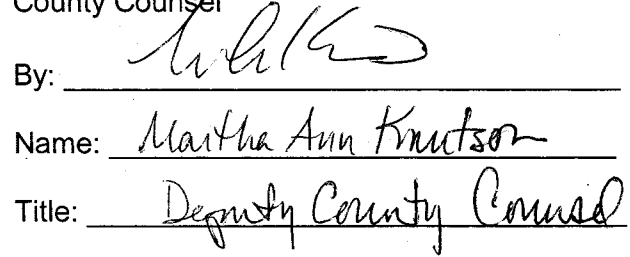 County Counsel
By:
Name: Martha Ann Knutson
Title: Deputy County Counsel